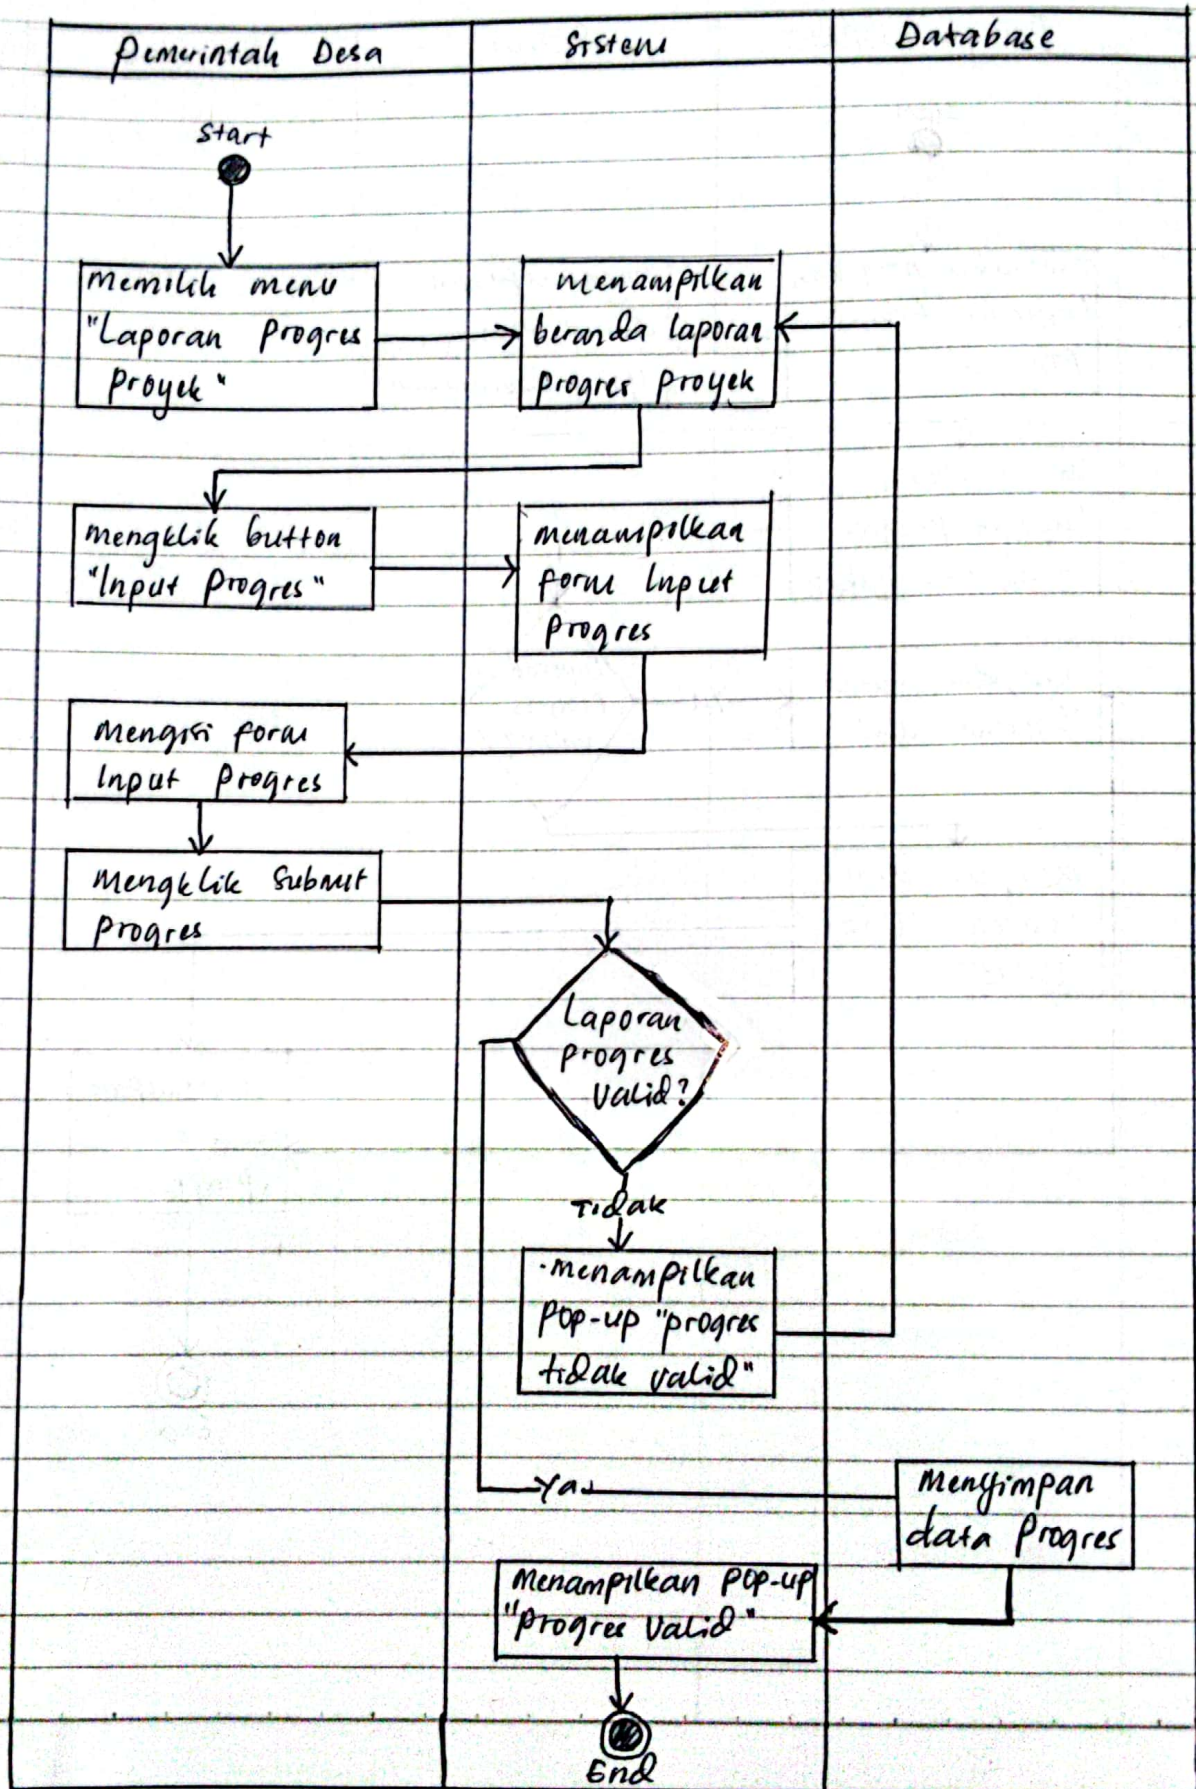 Pemerintah Desa
Sistem
Database
Start
Memilih menu
"Laporan Progres
Proyek"
menampilkan
beranda laporan
progres proyek
mengklik button
"Input Progres"
menampilkan
form Input
Progres
Mengisi form
Input Progres
Mengklik Submit
Progres
Laporan
Progres
Valid?
Tidak
menampilkan
Pop-up "progres
tidak valid"
Ya
Menyimpan
data Progres
Menampilkan Pop-up
"Progres Valid"
End